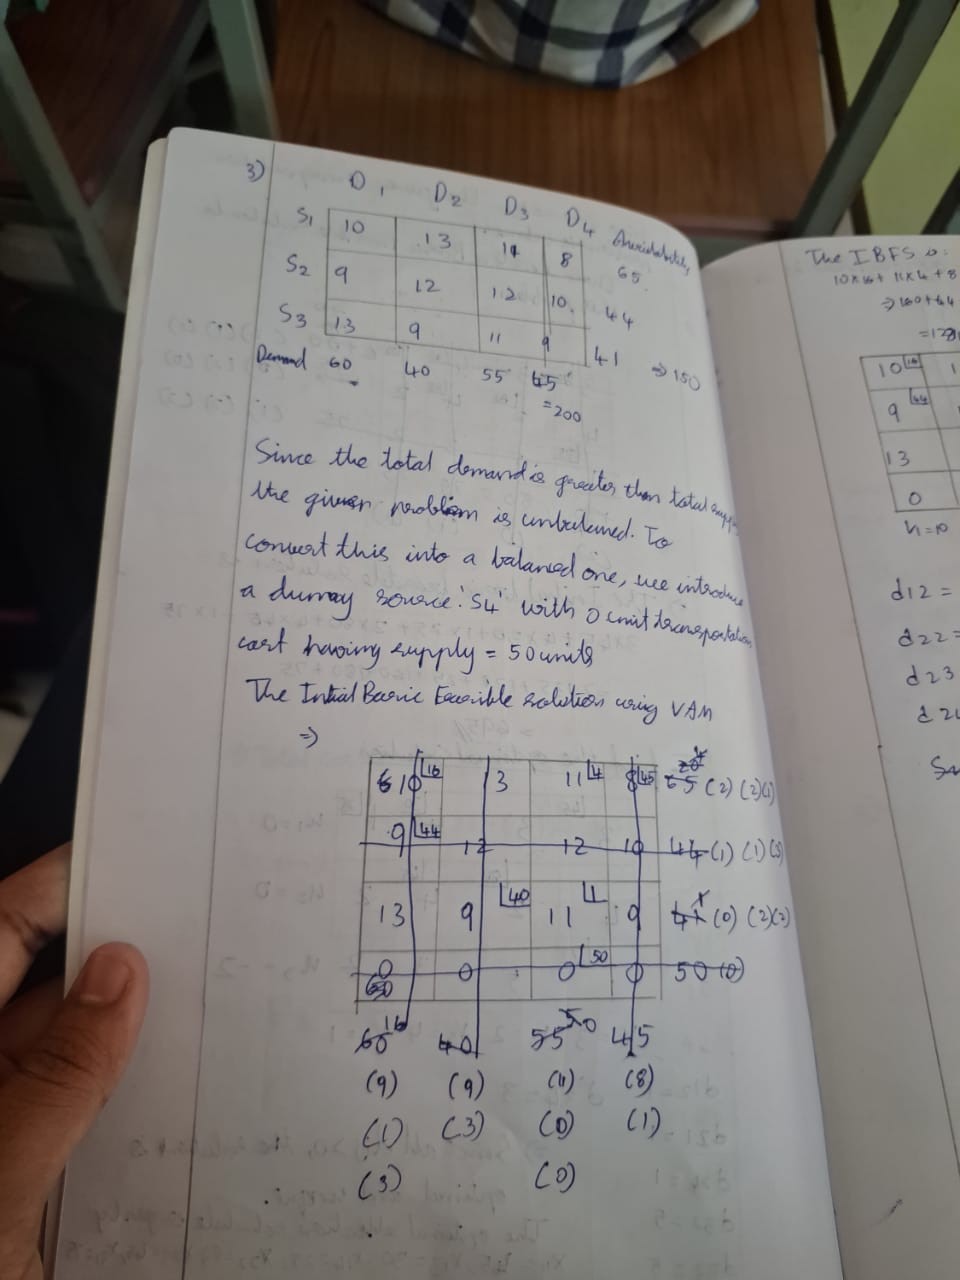 3)
D1 D2 D3 D4 Availability
S1 10 13 11 8 65
S2 9 12 12 10 44
S3 13 9 11 9 41 ⇒ 150
Demand 60 40 55 45
= 200
Since the total demand is greater than total supply
the given problem is unbalanced. To
convert this into a balanced one, we introduce
a dummy source 'S4' with 0 unit transportation
cost having supply = 50 units
The Initial Basic Feasible solution using VAM
⇒
10 16 13 11 4 8 45 65 20 4 (2) (2) (1)
9 44 12 12 10 44 (1) (1) (3)
13 9 40 11 1 9 41 1 (0) (2) (2)
0 0 0 50 0 50 (0)
60 16 40 55 50 45
(9) (9) (11) (8)
(1) (3) (0) (1)
(3) (0)
The IBFS is:
10×16 + 11×4 + 8
⇒ 160+44
10 16
9 44
13
0
d12 =
d22 =
d23